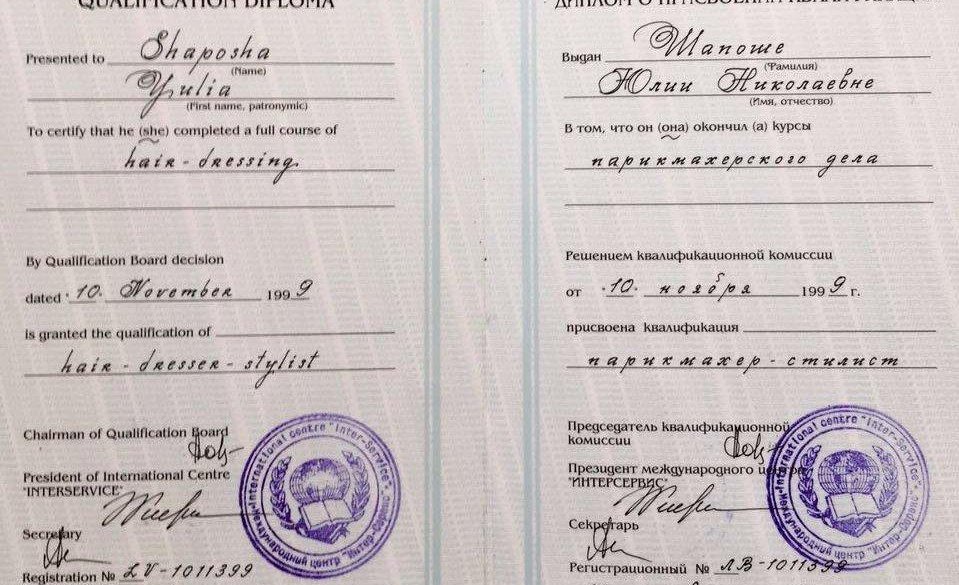 QUALIFICATION DIPLOMA
Presented to Shaposha
(Name)
Yulia
(First name, patronymic)
To certify that he (she) completed a full course of
hair-dressing
By Qualification Board decision
dated 10 November 1999
is granted the qualification of
hair-dresser-stylist
Chairman of Qualification Board
President of International Centre
"INTERSERVICE"
Secretary
Registration № LV-1011399
International centre "Inter-Service"
Международный центр "Интер-Сервис"
ДИПЛОМ О ПРИСВОЕНИИ КВАЛИФИКАЦИИ
Выдан Шапоше
(Фамилия)
Юлии Николаевне
(Имя, отчество)
В том, что он (она) окончил (а) курсы
парикмахерского дела
Решением квалификационной комиссии
от 10 ноября 1999 г.
присвоена квалификация
парикмахер-стилист
Председатель квалификационной
комиссии
Президент международного центра
"ИНТЕРСЕРВИС"
Секретарь
Регистрационный № ЛВ-1011399
International centre "Inter-Service"
Международный центр "Интер-Сервис"